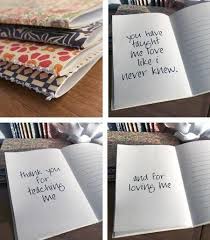 you have
taught
me love
like i
never knew.
thank you
for
teaching
me
and for
loving me